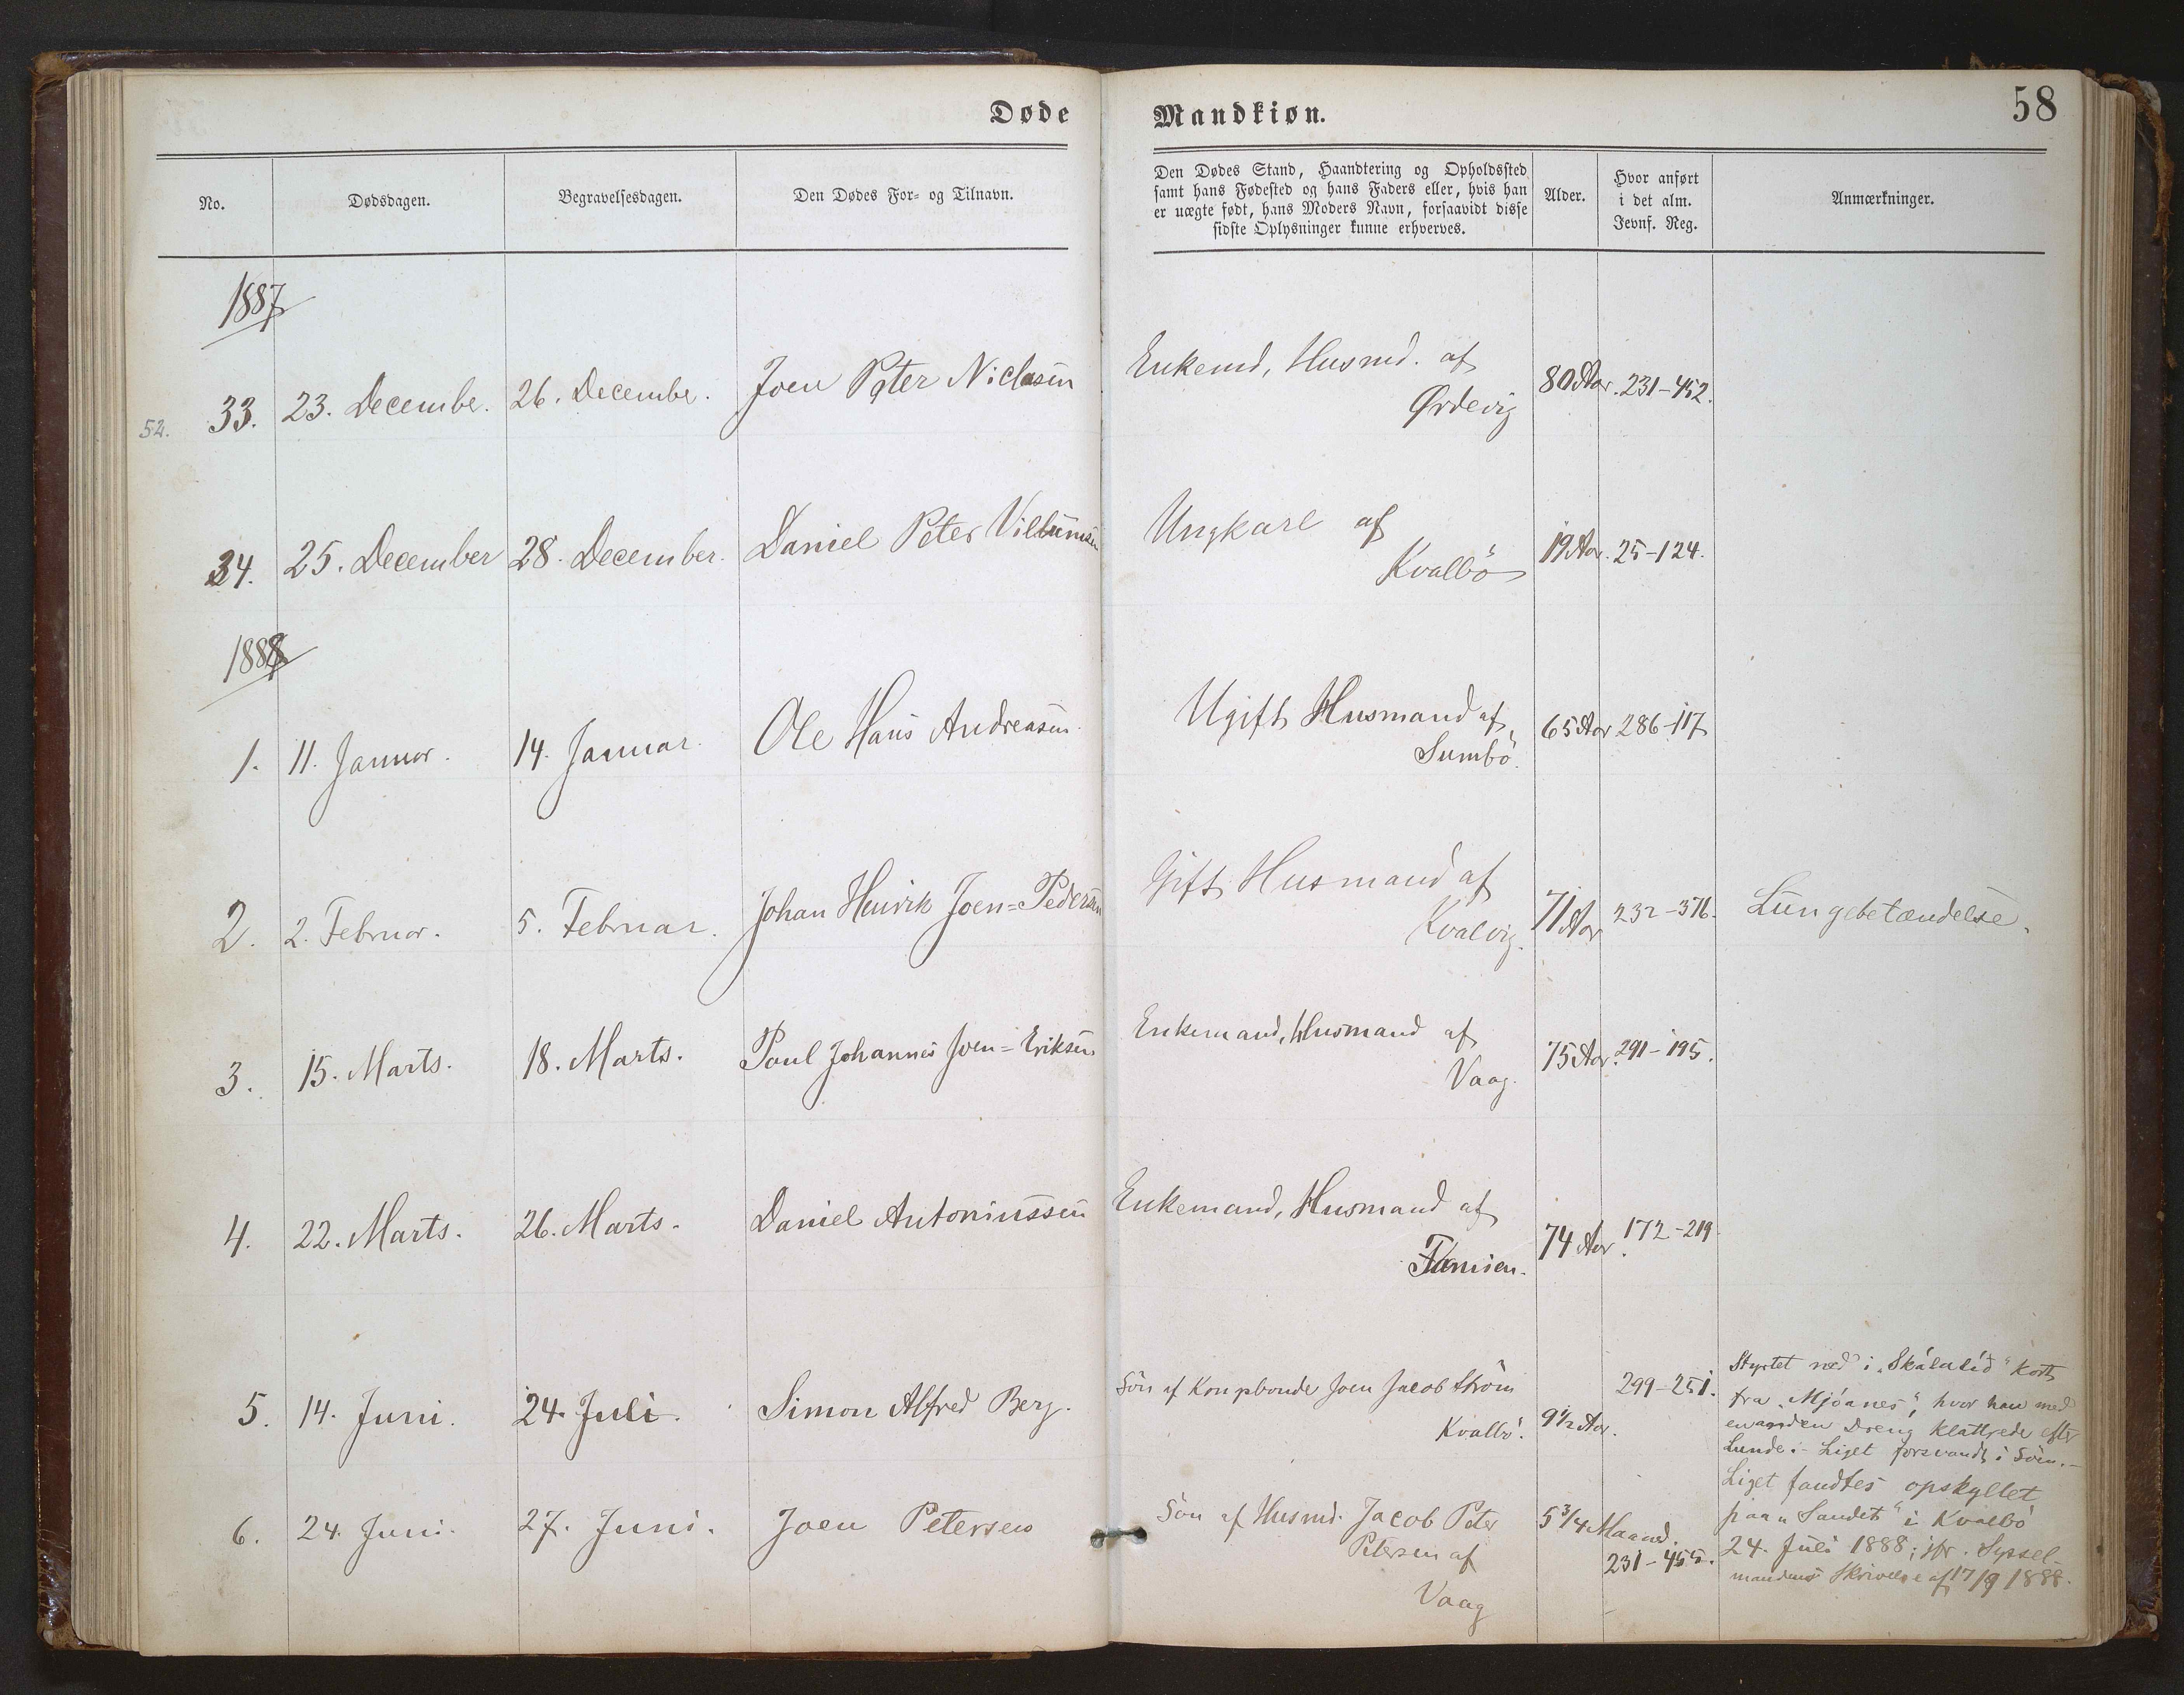 Døde Mandkiøn.
58
No.
Dødsdagen.
Begravelsesdagen.
Den Dødes For- og Tilnavn.
Den Dødes Stand, Haandtering og Opholdssted
samt hans Fødested og hans Faders eller, hvis han
er uægte født, hans Moders Navn, forsaavidt disse
sidste Oplysninger kunne erhverves.
Alder.
Hvor anført
i det alm.
Jevnf. Reg.
Anmærkninger.
1887
52. 33. 23. Decembr. 26. Decembr. Joen Peter Niclasen
Enkemd, Husmd. af
Ørdevig
80 Aar. 231-452.
34. 25. December 28. December. Daniel Peter Villumsen
Ungkarl af
Kvalbö
19 Aar. 25-124.
1888
1. 11. Januar. 14. Januar. Ole Hans Andreasen
Ugift Husmand af
Sumbö.
65 Aar 286-117
2. 2. Februar. 5. Februar. Johan Henrik Joen=Pedersen
Gift Husmand af
Kvalvig.
71 Aar 232-376. Lungebetændelse.
3. 15. Marts. 18. Marts. Poul Johannes Joen=Eriksen
Enkemand, Husmand af
Vaag.
75 Aar. 291-195.
4. 22. Marts. 26. Marts. Daniel Antoniussen
Enkemand, Husmand af
Famien.
74 Aar. 172-219.
5. 14. Juni. 24. Juli. Simon Alfred Berg.
Sön af Kongsbonde Joen Jacob Ström
Kvalbö.
9 1/2 Aar.
299-251.
Styrtet ned i "Skálalíd" kort
fra "Mjóanes", hvor han med
en anden Dreng klattrede efter
Lunde. - Liget forsvandt i Söen. -
Liget fandtes opskyllet
paa "Sandet" i Kvalbö
24. Juli 1888; jfr. Syssel-
mandens Skrivelse af 17/9 1888.
6. 24. Juni. 27. Juni. Joen Petersen
Sön af Husmd. Jacob Peter
Petersen af
Vaag
5 3/4 Maaned.
231-455.